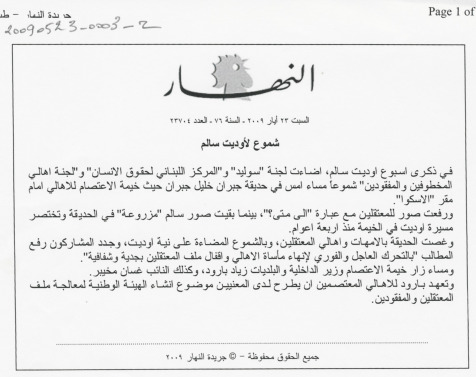 جريدة النهار - ط
Page 1 of
20090523-0003-2
النهار
السبت ٢٣ أيار ٢٠٠٩ - السنة ٧٦ - العدد ٢٣٧٠٤
شموع لأوديت سالم
في ذكرى اسبوع اوديت سالم، اضاءت لجنة "سوليد" و"المركز اللبناني لحقوق الانسان" و"لجنة اهالي
المخطوفين والمفقودين" شموعاً مساء امس في حديقة جبران خليل جبران حيث خيمة الاعتصام للاهالي امام
مقر "الاسكوا".
ورفعت صور للمعتقلين مع عبارة "الى متى؟"، بينما بقيت صور سالم "مزروعة" في الحديقة وتختصر
مسيرة اوديت في الخيمة منذ اربعة اعوام.
وغصت الحديقة بالامهات واهالي المعتقلين، وبالشموع المضاءة على نية اوديت، وجدد المشاركون رفع
المطالب "بالتحرك العاجل والفوري لإنهاء مأساة الاهالي واقفال ملف المعتقلين بجدية وشفافية".
ومساء زار خيمة الاعتصام وزير الداخلية والبلديات زياد بارود، وكذلك النائب غسان مخيبر.
وتعهد بارود للاهالي المعتصمين ان يطرح لدى المعنيين موضوع انشاء الهيئة الوطنية لمعالجة ملف
المعتقلين والمفقودين.
جميع الحقوق محفوظة - © جريدة النهار ٢٠٠٩